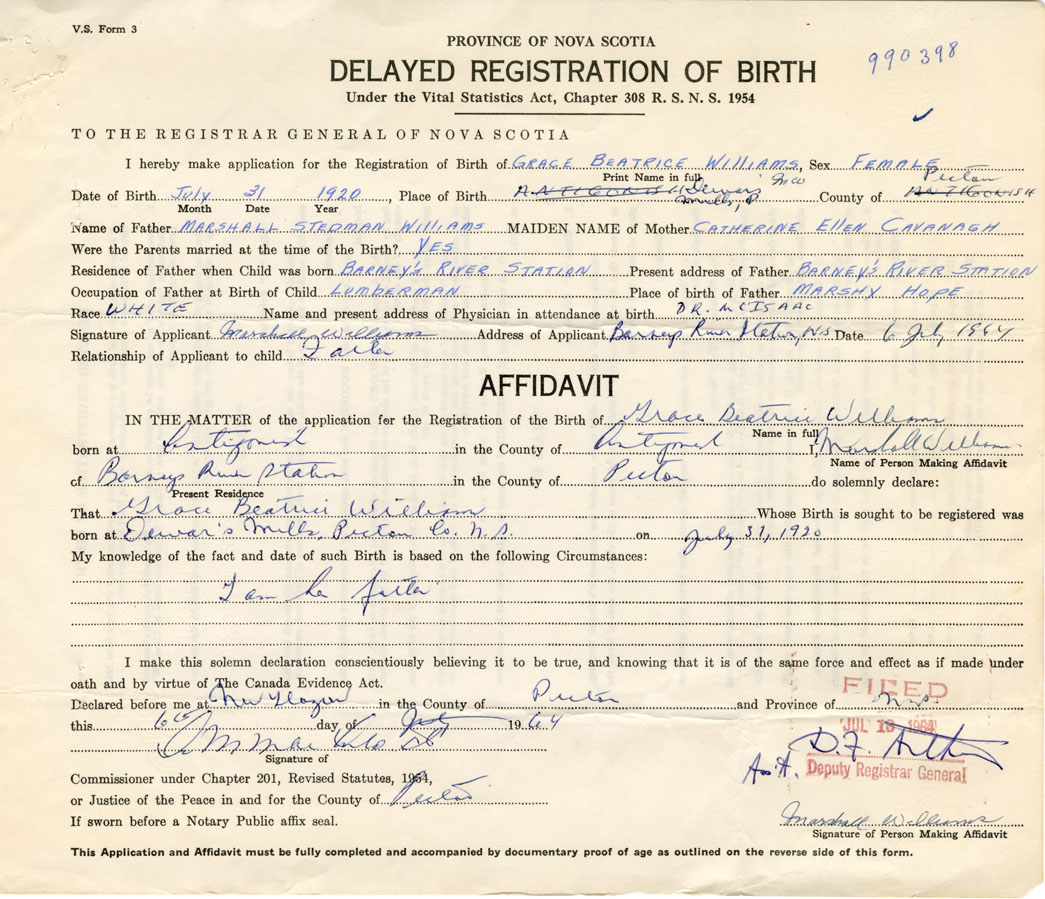 V.S. Form 3
990398
PROVINCE OF NOVA SCOTIA
DELAYED REGISTRATION OF BIRTH
Under the Vital Statistics Act, Chapter 308 R. S. N. S. 1954
TO THE REGISTRAR GENERAL OF NOVA SCOTIA
I hereby make application for the Registration of Birth of GRACE BEATRICE WILLIAMS, Sex FEMALE
Print Name in full
Pictou
Date of Birth July 31 1920, Place of Birth ANTIGONISH Dewar's Mills, P County of ANTIGONISH
Month Date Year
Name of Father MARSHALL STEDMAN WILLIAMS MAIDEN NAME of Mother CATHERINE ELLEN CAVANAGH
Were the Parents married at the time of the Birth? YES
Residence of Father when Child was born BARNEY'S RIVER STATION Present address of Father BARNEY'S RIVER STATION
Occupation of Father at Birth of Child LUMBERMAN Place of birth of Father MARSHY HOPE
Race WHITE Name and present address of Physician in attendance at birth DR. McISAAC
Signature of Applicant Marshall Williams Address of Applicant Barneys River Station, NS Date 6 July 1964
Relationship of Applicant to child Father
AFFIDAVIT
IN THE MATTER of the application for the Registration of the Birth of Grace Beatrice William
Name in full
born at Antigonish in the County of Antigonish I, Marshall Williams
Name of Person Making Affidavit
of Barneys River Station in the County of Pictou do solemnly declare:
Present Residence
That Grace Beatrice William Whose Birth is sought to be registered was
born at Dewar's Mills, Pictou Co. N.S. on July 31, 1920
My knowledge of the fact and date of such Birth is based on the following Circumstances:
I am her father
I make this solemn declaration conscientiously believing it to be true, and knowing that it is of the same force and effect as if made under
oath and by virtue of The Canada Evidence Act.
Declared before me at New Glasgow in the County of Pictou and Province of N.S.
this 6th day of July 1964
FILED
JUL 13 1964
Signature of
Deputy Registrar General
Commissioner under Chapter 201, Revised Statutes, 1954,
or Justice of the Peace in and for the County of Pictou
If sworn before a Notary Public affix seal.
Marshall Williams
Signature of Person Making Affidavit
This Application and Affidavit must be fully completed and accompanied by documentary proof of age as outlined on the reverse side of this form.